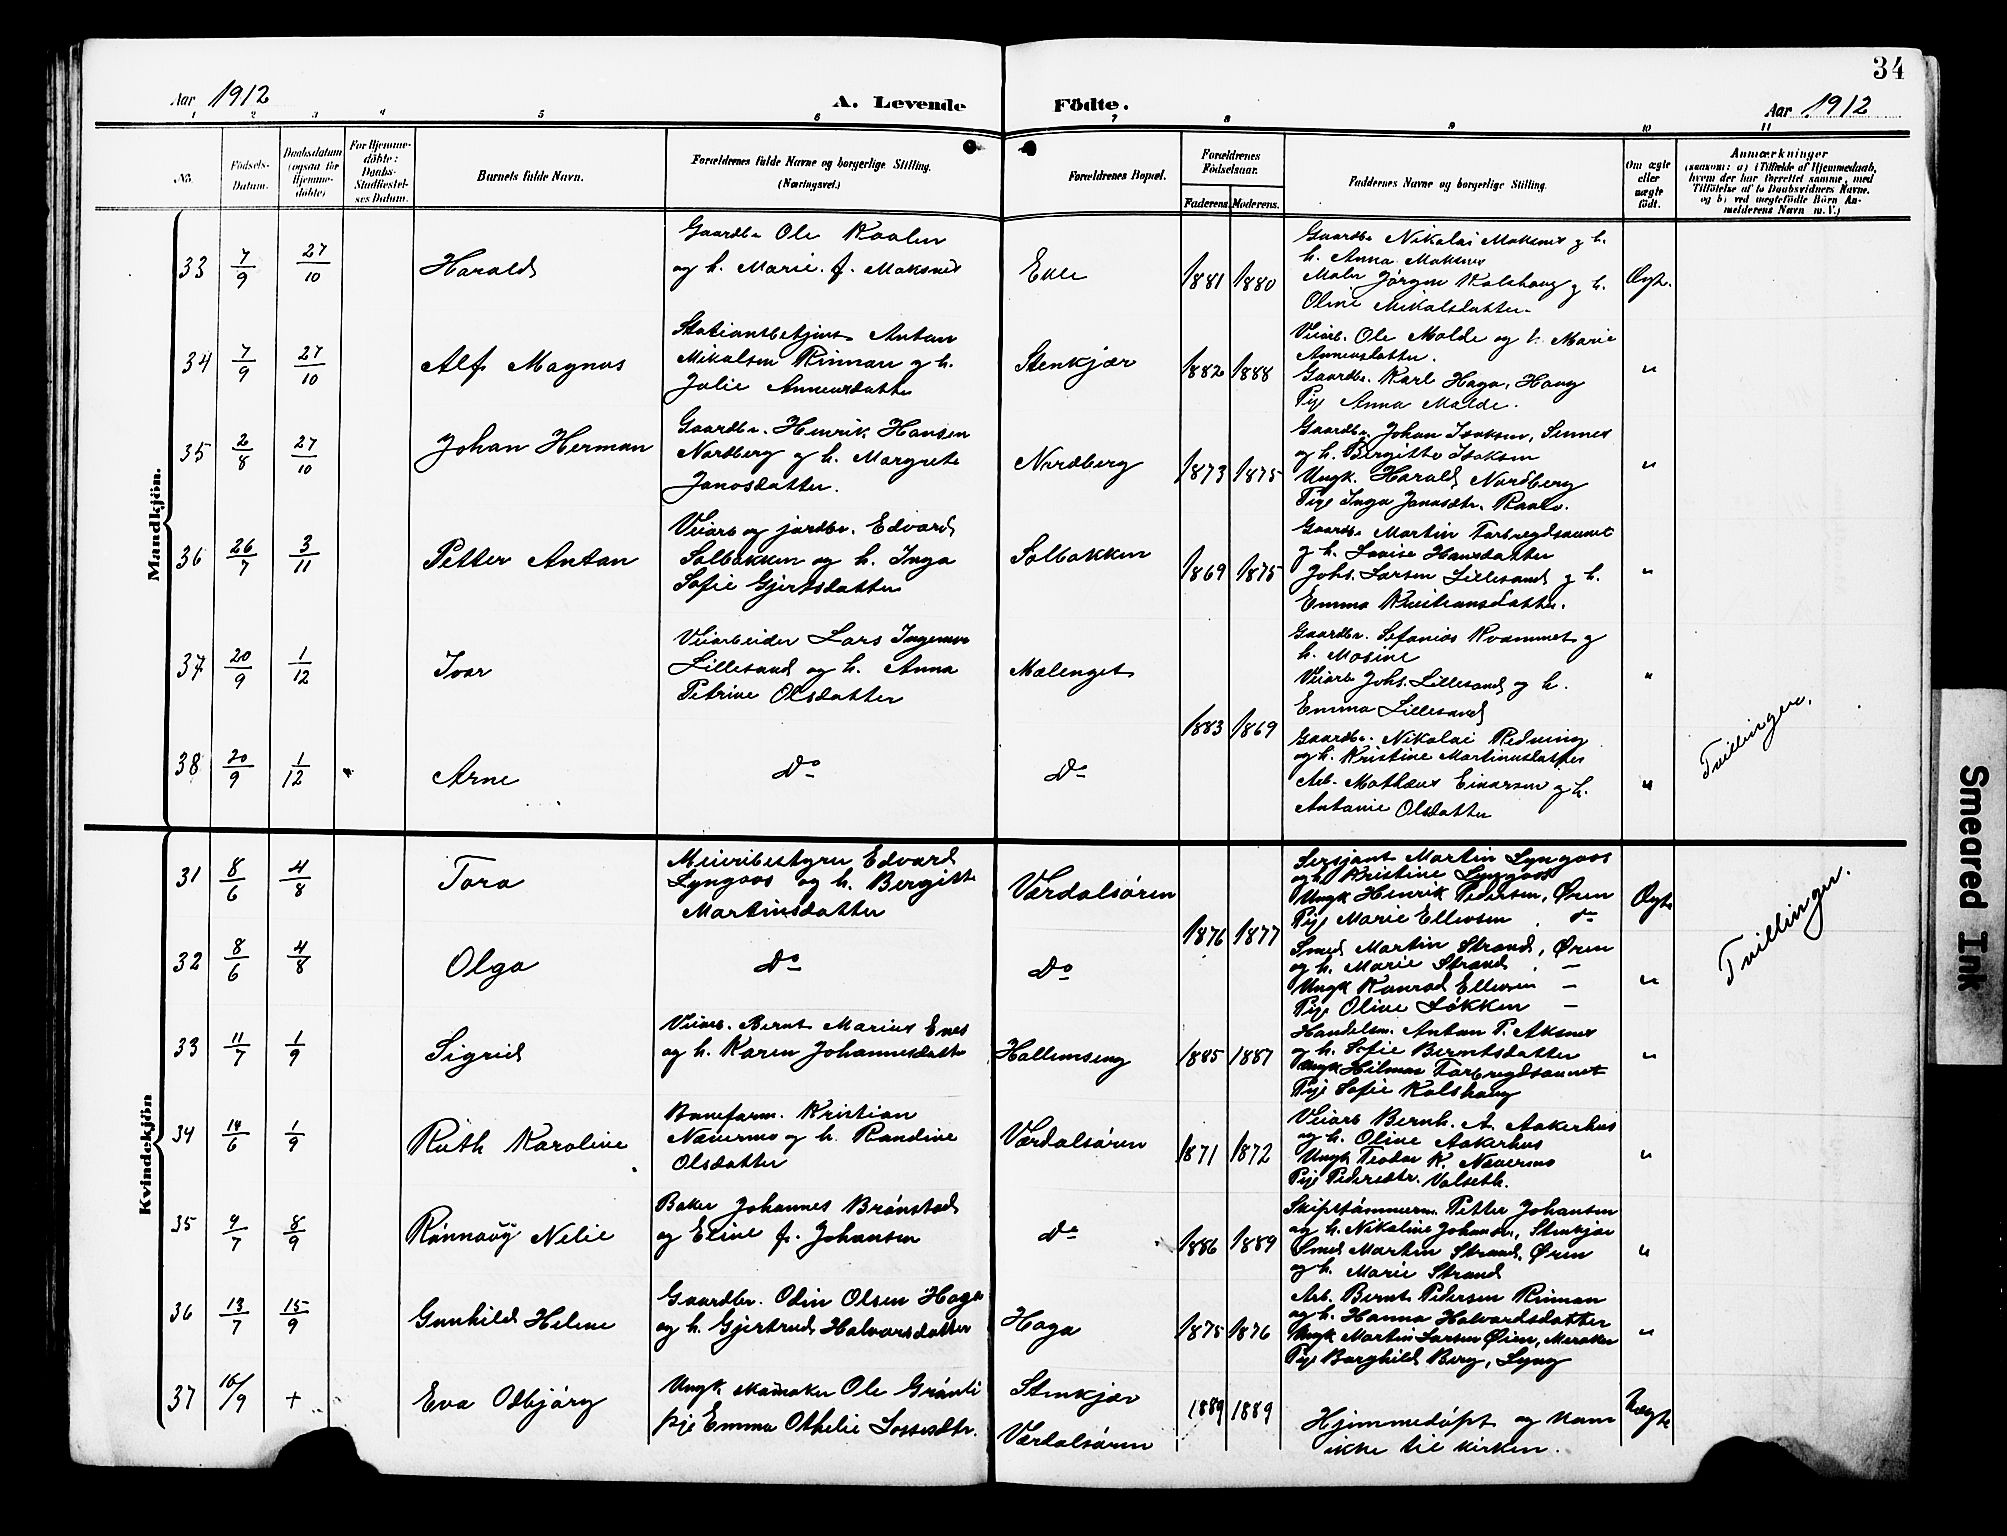 34
Aar 1912
A. Levende Födte.
Aar 1912
1 2 3 4 5 6 7 8 9 10 11
No.
Födsels-Datum.
Daabsdatum (ogsaa for Hjemmedöbte)
For Hjemmedöbte: Daabs-Stadfæstelses Datum.
Barnets fulde Navn.
Forældrenes fulde Navne og borgerlige Stilling. (Næringsvei.)
Forældrenes Bopæl.
Forældrenes Födselsaar.
Faderens. Moderens.
Faddernes Navne og borgerlige Stilling.
Om ægte eller uægte födt.
Anmærkninger
(saasom: a) i Tilfælde af Hjemmedaab, hvem der har forrettet samme, med Tilföielse af to Daabsvidners Navne. og b) ved uægtefödte Börn Anmelderens Navn m. V.)
Mandkjön.
33 7/9 27/10 Harald
Gaardbr Ole Kaalen
og h. Marie f. Maksnes
Ekle 1881 1880
Gaardbr Nikolai Maksnes g h.
h. Anna Maksnes
Maler Jørgen Kalshaug g h.
Oline Mikalsdatter.
Ægte.
34 7/9 27/10 Alf Magnus
Stationsbetjent Anton
Mikalsen Rinnan g h.
Julie Anneusdatter
Stenkjær 1882 1888
Veiarb. Ole Molde og h. Marie
Anneusdatter.
Gaardbr. Karl Haga, Haug
Pige Anna Molde.
"
35 2/8 27/10 Johan Herman
Gaardbr. Henrik Hansen
Nordberg g h. Margrete
Jonasdatter.
Nordberg 1873 1875
Gaardbr. Johan Isaksen, Sennes
og h. Bergitte Isaksen
Ungk. Harald Nordberg
Pige Inga Jonasdtr.
"
36 26/7 3/11 Petter Anton
Veiarb og jordbr. Edvard
Solbakken og h. Inga
Sofie Gjertsdatter
Solbakken 1869 1875
Gaardbr Martin Forbregdsaunet
g h. Lovise Hansdatter
Johs. Larsen Lillesand g h.
Emma Kristiansdatter.
"
37 20/9 1/12 Ivar
Veiarbeider Lars Ingemar
Lillesand og h. Anna
Petrine Olsdatter
Mælenget
Gaardbr. Sefanias Kvammet g
h. Mosine
Veiarb Johs. Lillesand og h.
Emma Lillesand
"
1883 1869
38 20/9 1/12 Arne
Do Do
Gaardbr. Nikolai Redning
og h. Kristine Martinusdatter
Arb. Mathæus Einarsen g h.
Antonie Olsdatter
"
Tvillinger.
Kvindekjön
31 8/6 4/8 Tora
Meieribestyrer Edvard
Lyngaas og h. Bergitte
Martinsdatter
Værdalsøren
Sersjant Martin Lyngaas
og h Kristine Lyngaas
Ungk Henrik Pedersen, Øren
Pige Marie Ellevsen do
Ægte
1876 1877
32 8/6 4/8 Olga
Do Do
Smed Martin Strand, Øren
og h. Marie Strand —
Ungk Konrad Ellevsen —
Pige Oline Løkken —
"
Tvillinger.
33 11/7 1/9 Sigrid
Veiarb. Bernt Marius Enes
og h. Karen Johannesdatter
Hallemseng 1885 1887
Handelsm. Anton P. Aksnes
og h. Sofie Berntsdatter
Ungk Hilmar Forbregdsaunet
Pige Sofie Kalshaug
"
34 14/6 1/9 Ruth Karoline
Baneform. Kristian
Nævermo g h. Randine
Olsdatter
Værdalsøren 1871 1872
Veiarb Bernh. A. Aakerhus
og h. Oline Aakerhus
Ungk Teodor K. Nævermo
Pige Pedersdtr. Valseth.
"
35 9/7 8/9 Rønnaug Nelie
Baker Johannes Brønstad
og Eline f. Johansen
do 1886 1889
Skipstømmerm. Petter Johansen
og h. Nikoline Johansen, Stenkjær
Smed Martin Strand, Øren
og h. Marie Strand
"
36 13/7 15/9 Gunhild Helene
Gaardbr. Odin Olsen Haga
og h. Gjertrud Halvorsdatter
Haga 1875 1876
Arb. Bernt Pedersen Rinnan
og h. Hanna Halvardsdatter
Ungk Martin Larsen Øien, Meraker
Pige Borghild Berg, Lyng
"
37 16/9 + Eva Odbjørg
Ungk Skomaker Ole Grønli
pige Emma Othelie Lossesdtr.
Stenkjær
Værdalsøren
1889 1889
Hjemmedøpt og kom
ikke til kirken.
Uægte
Smeared Ink